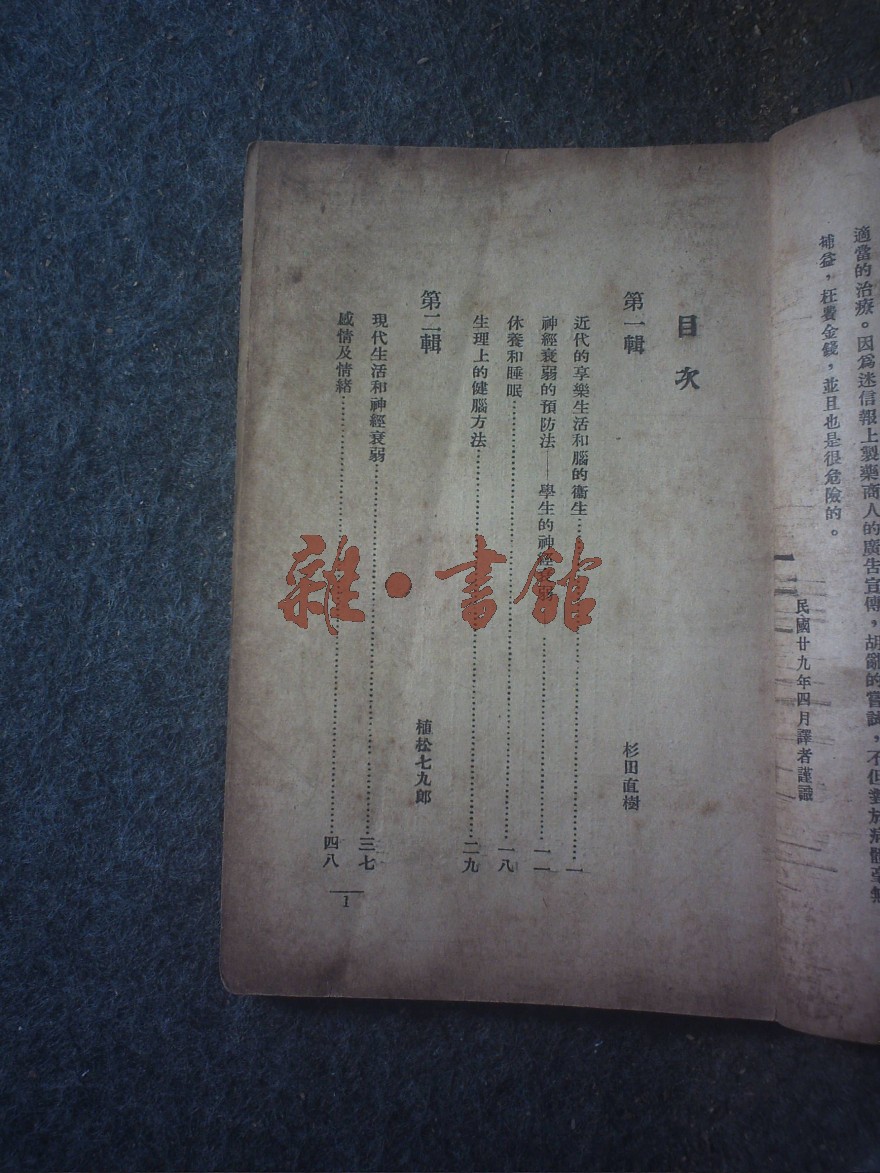 適當的治療。因爲迷信報上製藥商人的廣告宣傳，胡亂的嘗試，不但對於病體毫無
補益，枉費金錢，並且也是很危險的。
民國廿九年四月譯者謹識
目次
第一輯 杉田直樹
近代的享樂生活和腦的衞生…一
神經衰弱的預防法——學生的神經衰弱…一一
休養和睡眠…一八
生理上的健腦方法…二九
第二輯 植松七九郎
現代生活和神經衰弱…三七
感情及情緒…四八
1
雜·書館